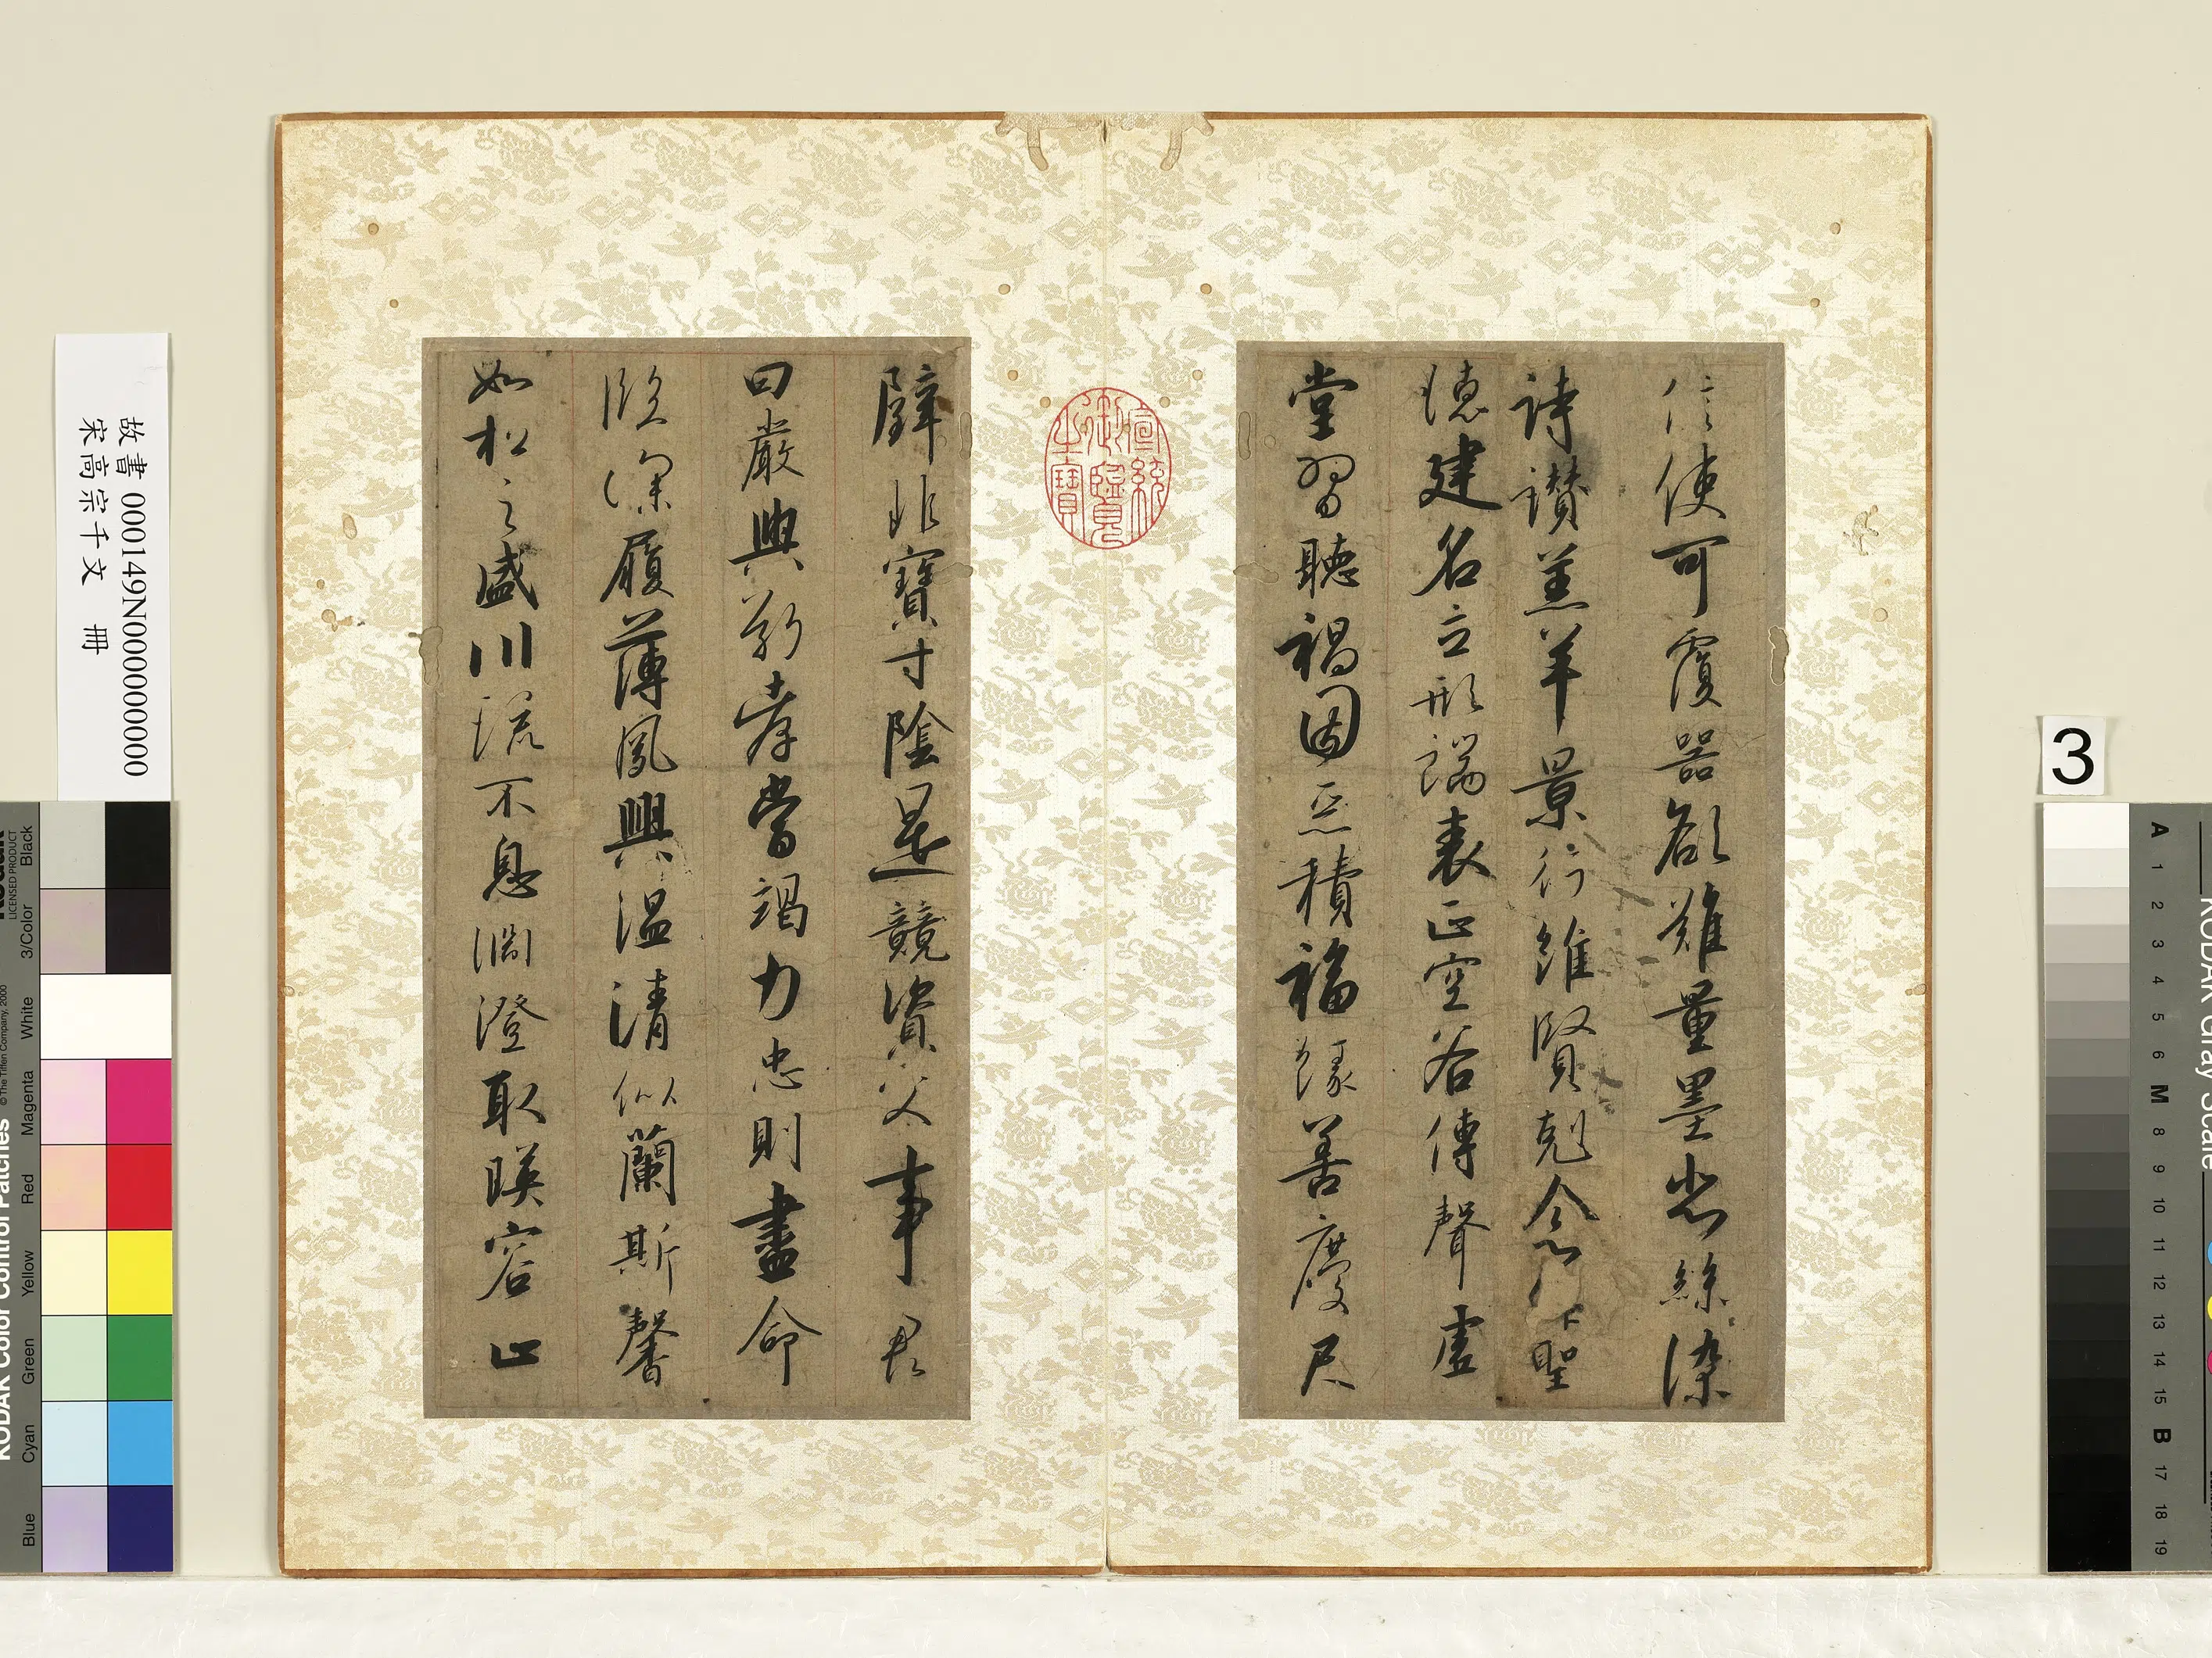 信使可覆器欲難量墨悲絲染
詩讚羔羊景行維賢剋念作聖
德建名立形端表正空谷傳聲虛
堂習聽禍因惡積福緣善慶尺
璧非寶寸陰是競資父事君
曰嚴與敬孝當竭力忠則盡命
臨深履薄夙興溫清似蘭斯馨
如松之盛川流不息淵澄取暎容止
宣統御覽之寶
故書 000149N000000000
宋高宗千文 冊
3
KODAK Color Control Patches
© The Tiffen Company, 2000
Kodak
LICENSED PRODUCT
Blue Cyan Green Yellow Red Magenta White 3/Color Black
KODAK Gray Scale
A 1 2 3 4 5 6 M 8 9 10 11 12 13 14 15 B 17 18 19